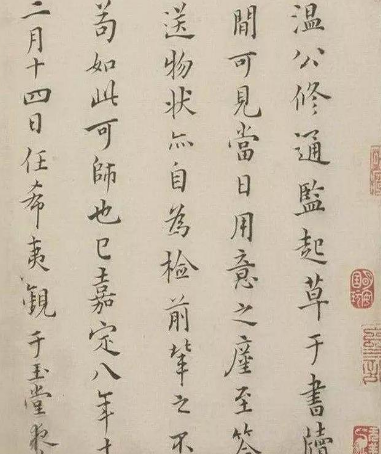 温公修通監起草于書牘
間可見當日用意之
送物状亦自為檢前輩之不
苟如此可師也已嘉定八年十
二月十四日任希夷觀于玉堂夜